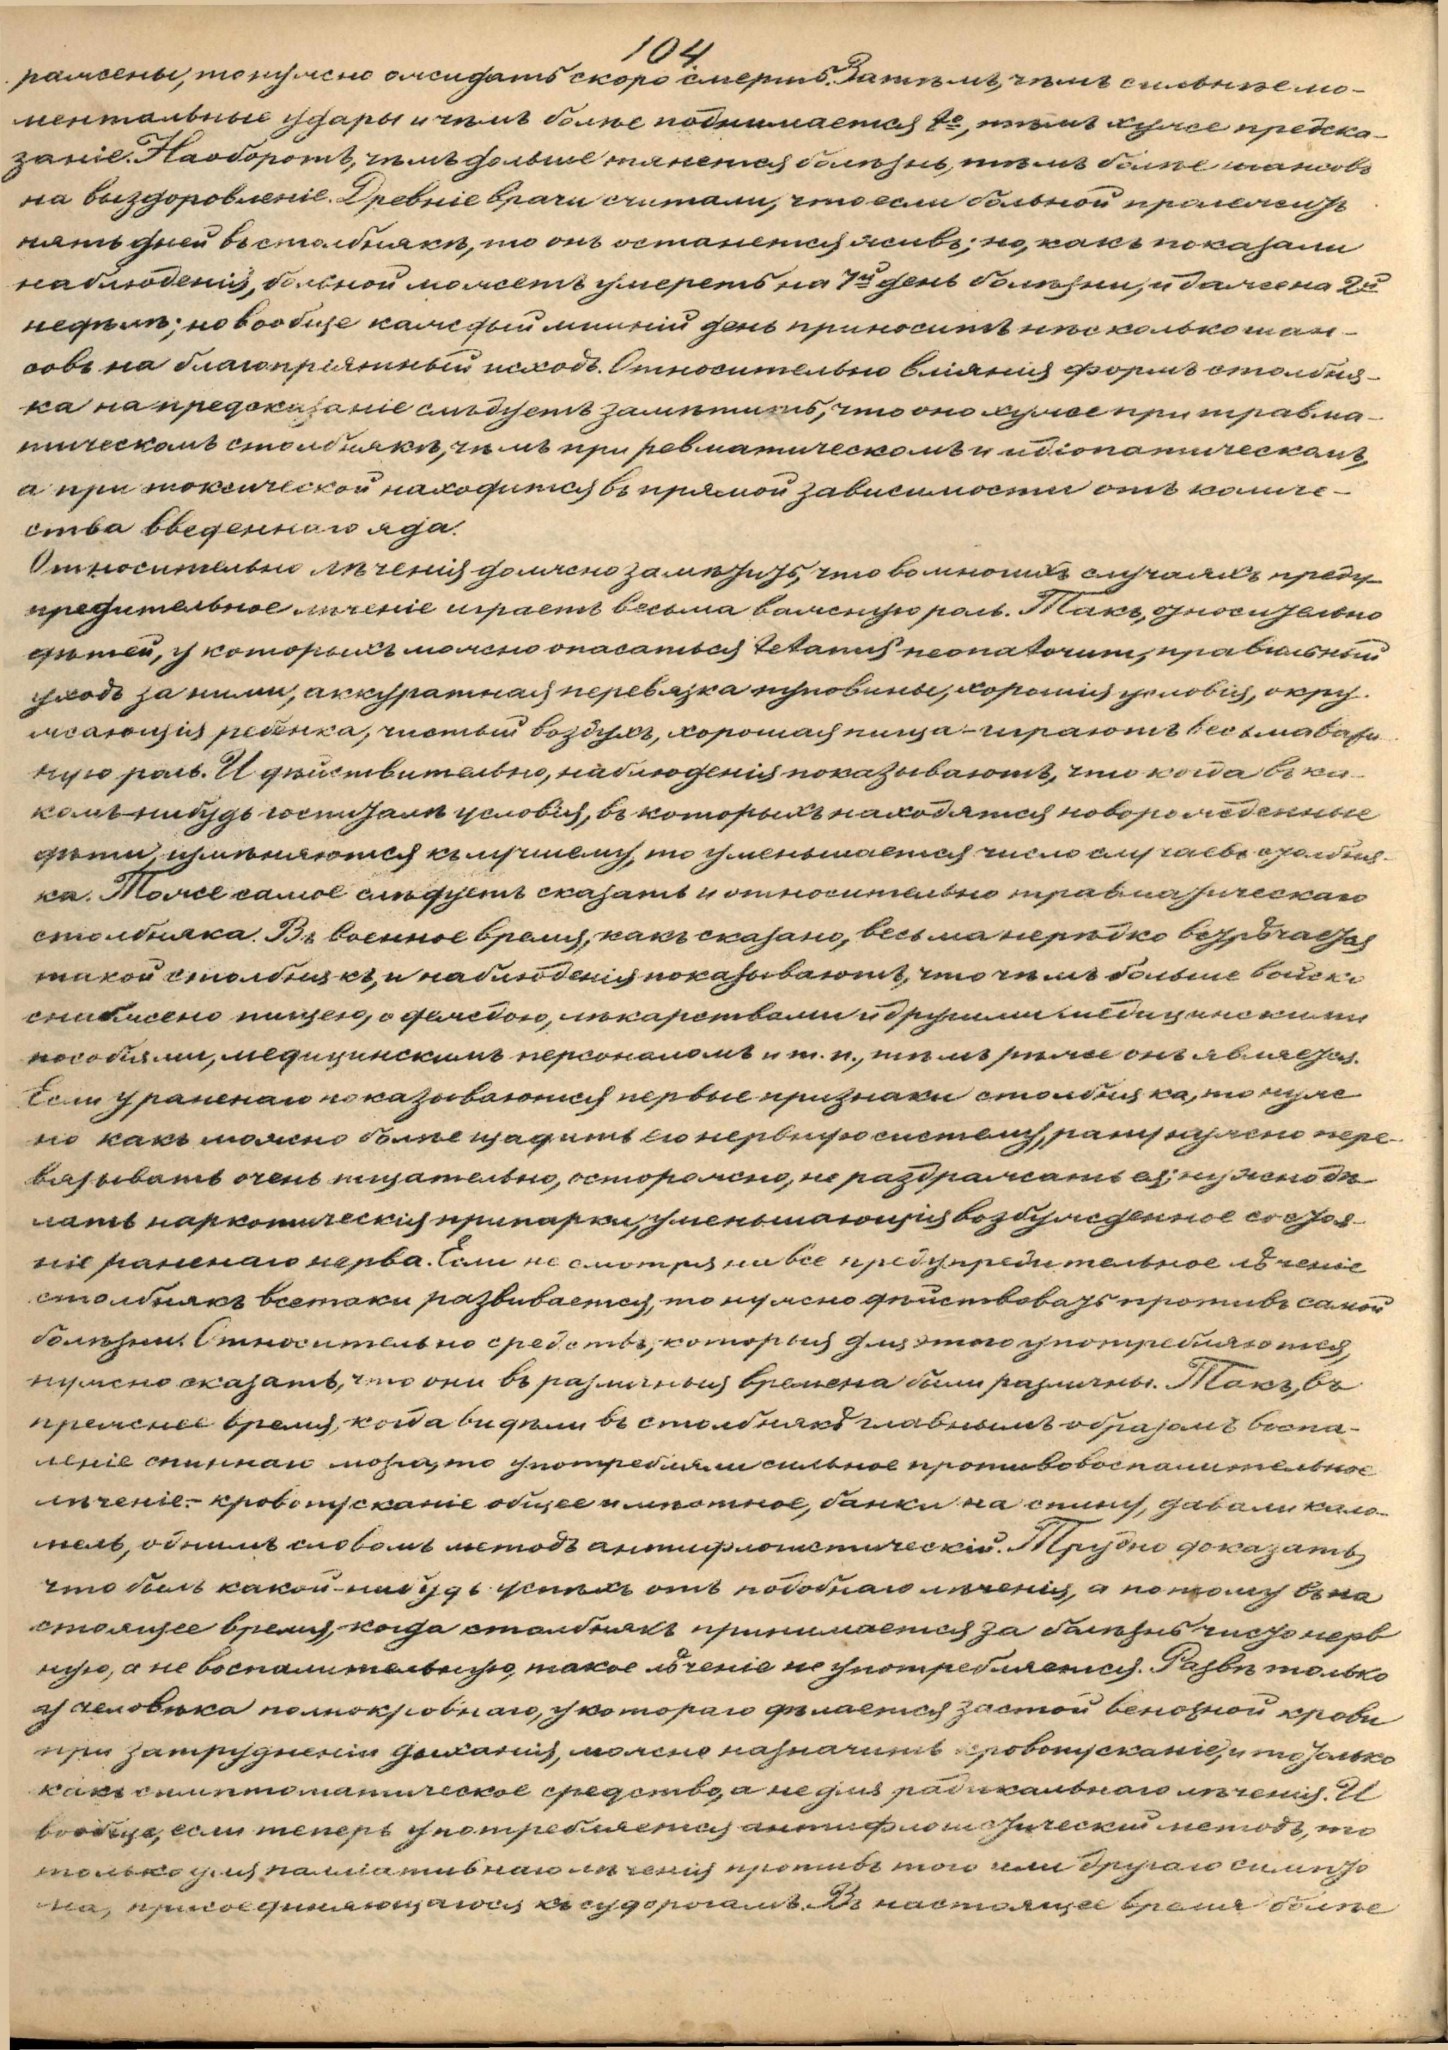 104
ражены, то нужно ожидать скоро смерть. Затѣмъ, чѣмъ сильнѣе мо-
ментальные удары и чѣмъ болѣе поднимается t°, тѣмъ хуже предска-
заніе. Наоборотъ, чѣмъ дольше тянется болѣзнь, тѣмъ болѣе шансовъ
на выздоровленіе. Древніе врачи считали, что если больной пролежитъ
пять дней въ столбнякѣ, то онъ останется живъ; но, какъ показали
наблюденія, больной можетъ умереть на 7й день болѣзни, и даже на 2й
недѣлѣ; но вообще каждый лишній день приноситъ нѣсколько шан-
совъ на благопріятный исходъ. Относительно вліянія формъ столбня-
ка на предсказаніе слѣдуетъ замѣтить, что оно хуже при травма-
тическомъ столбнякѣ, чѣмъ при ревматическомъ и идіопатическомъ,
а при токсической находится въ прямой зависимости отъ количе-
ства введеннаго яда.
Относительно лѣченія должно замѣтить, что во многихъ случаяхъ преду-
предительное лѣченіе играетъ весьма важную роль. Такъ, относительно
дѣтей, у которыхъ можно опасаться tetanus neonatorum, правильный
уходъ за ними, аккуратная перевязка пуповины, хорошія условія, окру-
жающія ребенка, чистый воздухъ, хорошая пища - играютъ весьма важ
ную роль. И дѣйствительно, наблюденія показываютъ, что когда въ ка-
комъ-нибудь госпиталѣ условія, въ которыхъ находятся новорожденные
дѣти, измѣняются къ лучшему, то уменьшается число случаевъ столбня-
ка. Тоже самое слѣдуетъ сказать и относительно травматическаго
столбняка. Въ военное время, какъ сказано, весьма нерѣдко встрѣчается
такой столбнякъ, и наблюденія показываютъ, что чѣмъ больше войско
снабжено пищею, одеждою, лѣкарствами и другими медицинскими
пособіями, медицинскимъ персоналомъ и т. п., тѣмъ рѣже онъ является.
Если у раненаго показываются первые признаки столбняка, то нуж
но какъ можно болѣе щадить его нервную систему, рану нужно пере-
вязывать очень тщательно, осторожно, не раздражать ея; нужно дѣ
лать наркотическія припарки, уменьшающія возбужденное состоя-
ніе раненаго нерва. Если не смотря на все предупредительное лѣченіе
столбнякъ всетаки развивается, то нужно дѣйствовать противъ самой
болѣзни. Относительно средствъ, которыя для этого употребляются,
нужно сказать, что они въ различныя времена были различны. Такъ, въ
прежнее время, когда видѣли въ столбнякѣ главнымъ образомъ воспа-
леніе спиннаго мозга, то употребляли сильное противовоспалительное
лѣченіе - кровопусканіе общее и мѣстное, банки на спину, давали кало-
мель, однимъ словомъ методъ антифлогистическій. Трудно доказать,
что былъ какой-нибудь успѣхъ отъ подобнаго лѣченія, а потому въ на
стоящее время, когда столбнякъ принимается за болѣзнь чисто нерв
ную, а не воспалительную, такое лѣченіе не употребляется. Развѣ только
у человѣка полнокровнаго, у котораго дѣлается застой венозной крови
при затрудненіи дыханія, можно назначить кровопусканіе, и то только
какъ симптоматическое средство, а не для радикальнаго лѣченія. И
вообще, если теперь употребляется антифлогистическій методъ, то
только для палліативнаго лѣченія противъ того или другаго симпто
ма, присоединяющагося къ судорогамъ. Въ настоящее время болѣе